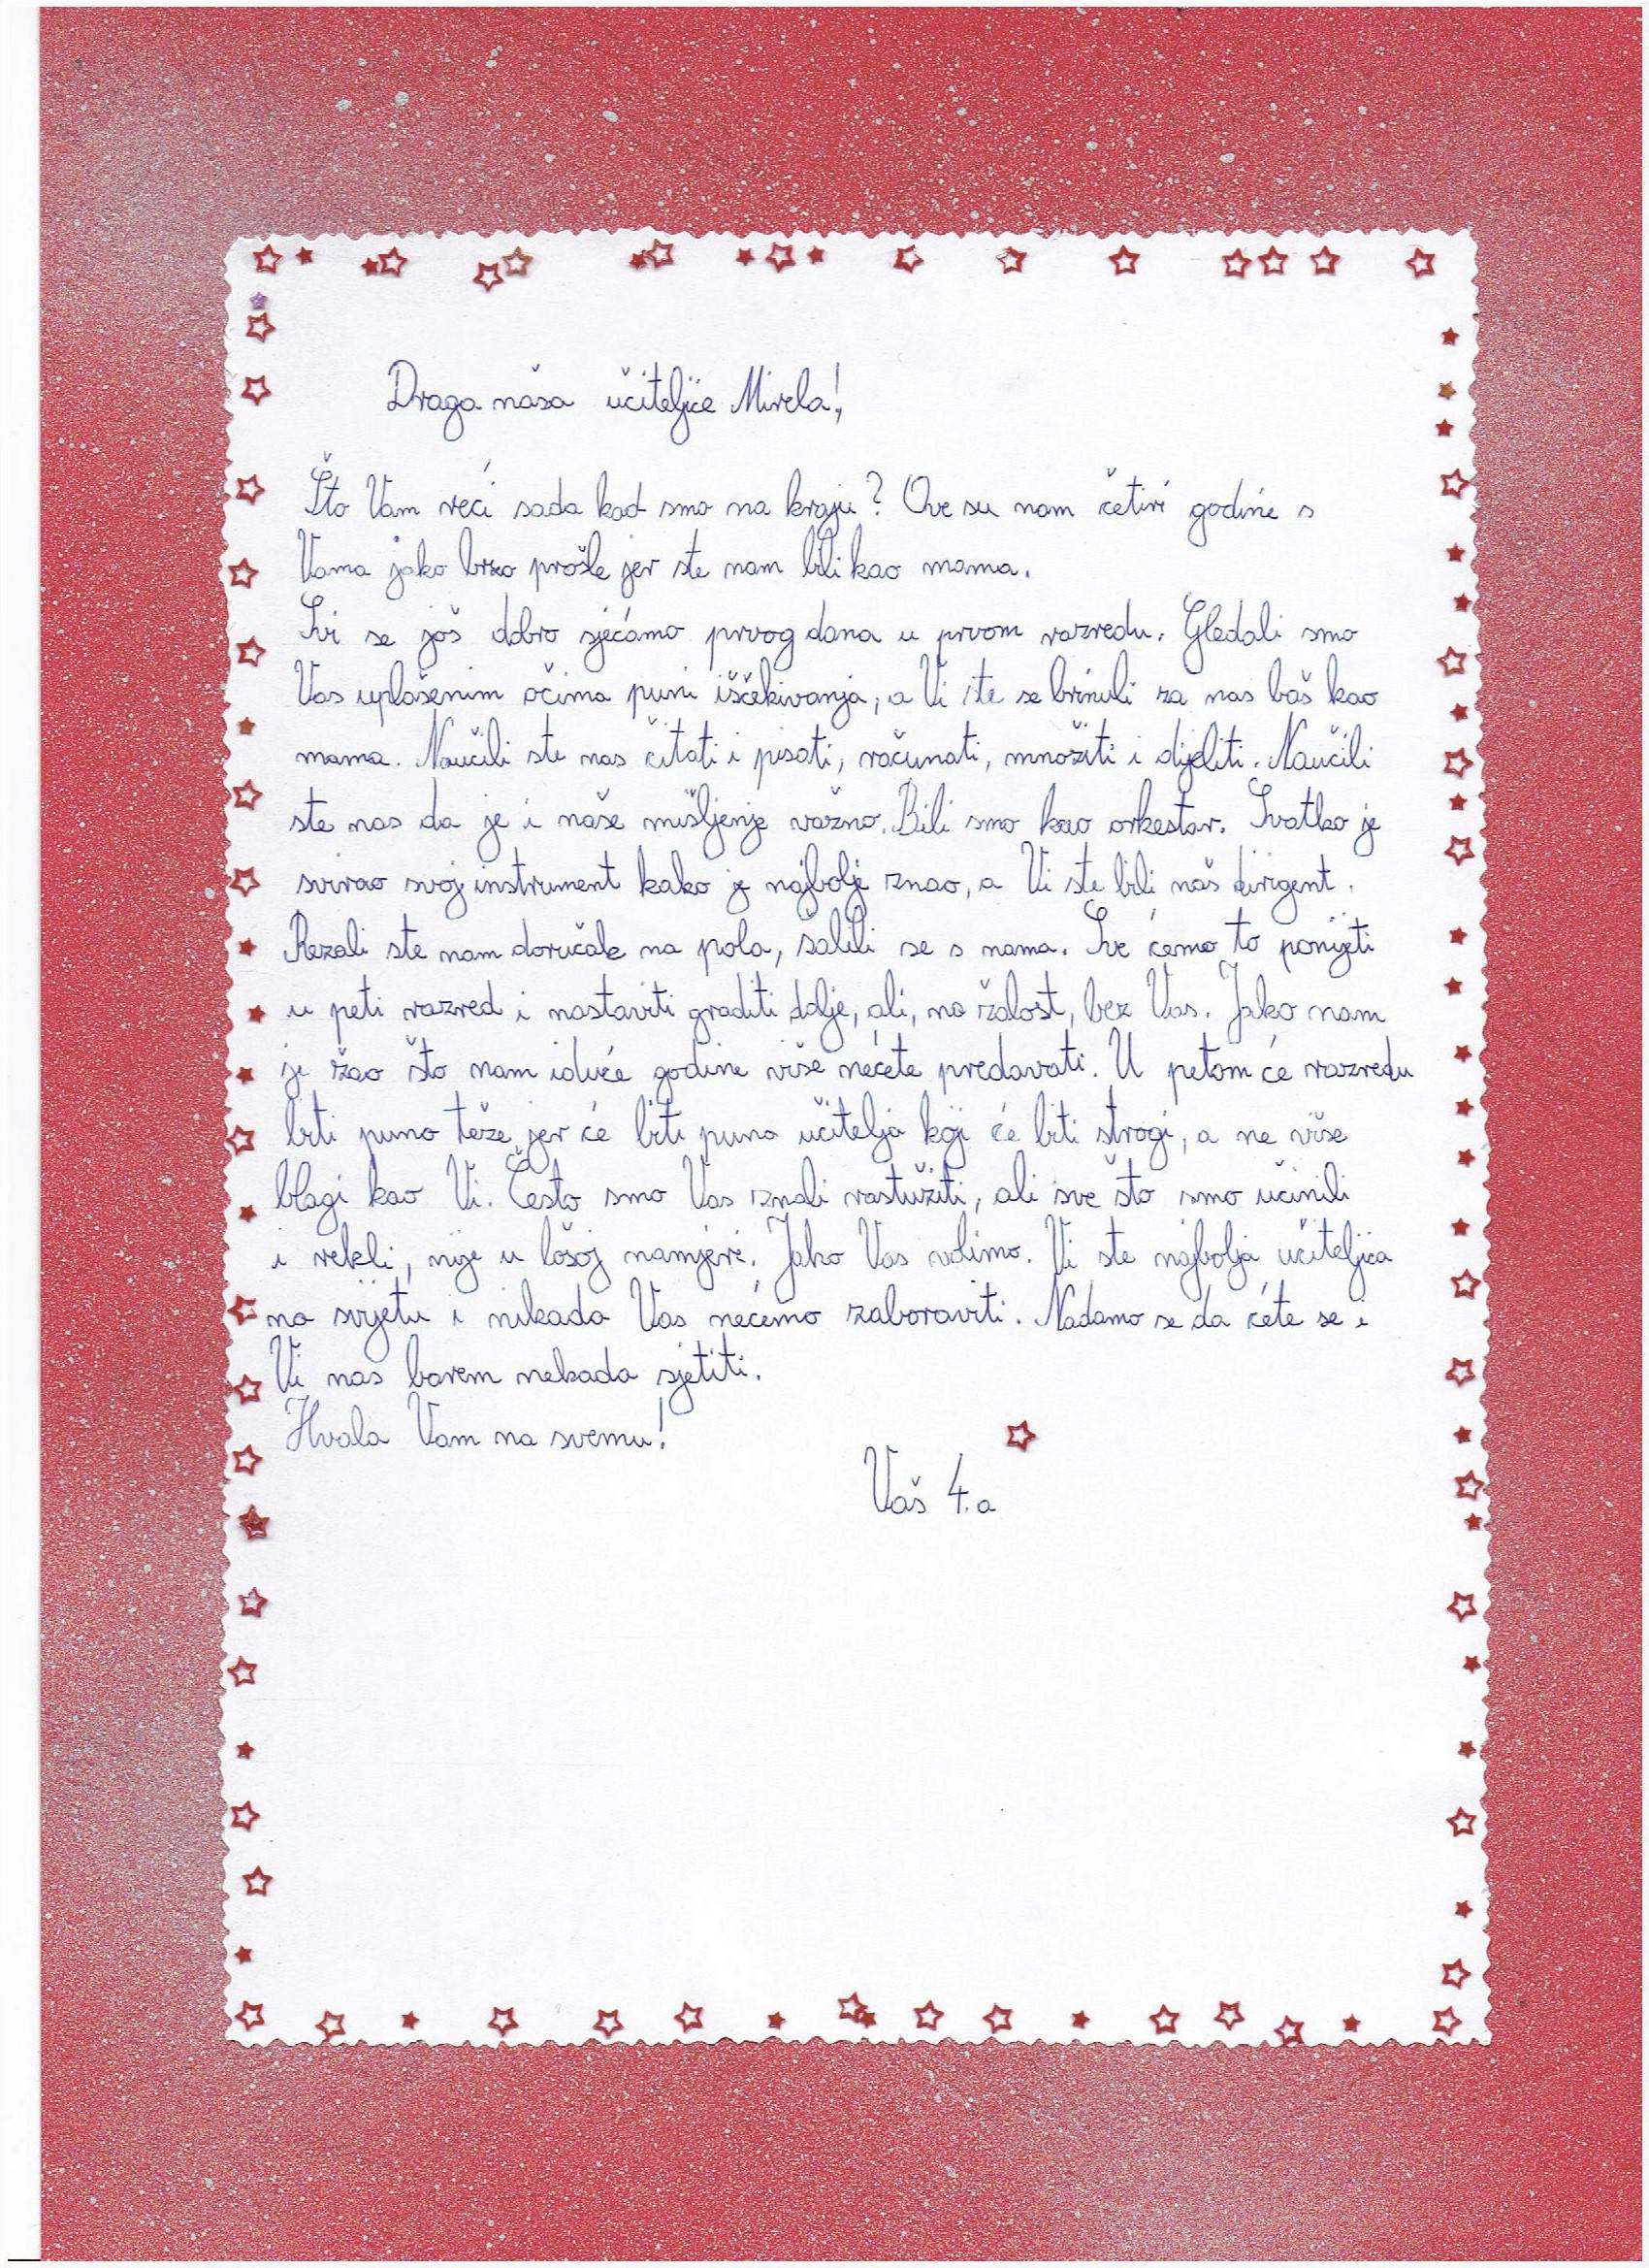 Draga naša učiteljice Mirela!
Što Vam reći sada kad smo na kraju? Ove su nam četiri godine s
Vama jako brzo prošle jer ste nam bili kao mama.
Svi se još dobro sjećamo prvog dana u prvom razredu. Gledali smo
Vas uplašenim očima puni iščekivanja, a Vi ste se brinuli za nas baš kao
mama. Naučili ste nas čitati i pisati, računati, množiti i dijeliti. Naučili
ste nas da je i naše mišljenje važno. Bili smo kao orkestar. Svatko je
svirao svoj instrument kako je najbolje znao, a Vi ste bili naš dirigent.
Rezali ste nam doručak na pola, šalili se s nama. Sve ćemo to ponijeti
u peti razred i nastaviti graditi dalje, ali, na žalost, bez Vas. Jako nam
je žao što nam iduće godine više nećete predavati. U petom će razredu
biti puno teže, jer će biti puno učitelja koji će biti strogi, a ne više
blagi kao Vi. Često smo Vas znali rastužiti, ali sve što smo učinili
i rekli, nije u lošoj namjeri. Jako Vas volimo. Vi ste najbolja učiteljica
na svijetu i nikada Vas nećemo zaboraviti. Nadamo se da ćete se i
Vi nas barem nekada sjetiti.
Hvala Vam na svemu!
Vaš 4.a